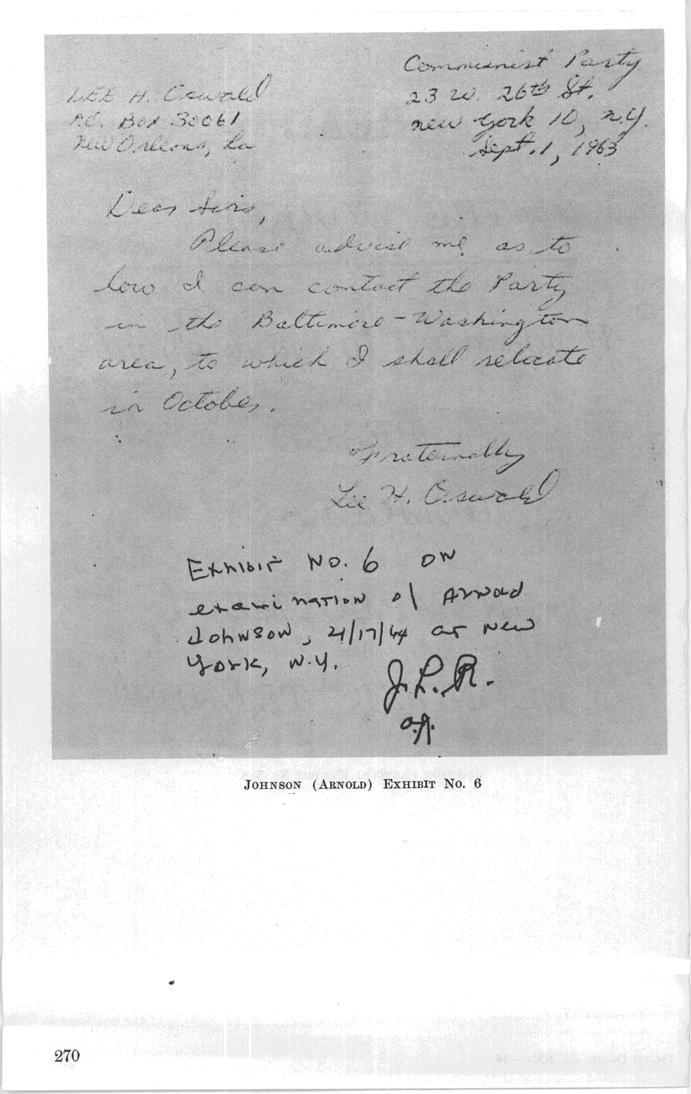 LEE H. Oswald
P.O. Box 30061
New Orleans, La
Communist Party
23 W. 26th St.
New York 10, N.Y.
Sept. 1, 1963
Dear Sirs,
Please advise me as to
how I can contact the Party
in the Baltimore-Washington
area, to which I shall relocate
in October.
Fraternally
Lee H. Oswald
Exhibit No. 6 on
examination of Arnold
Johnson, 4/17/64 at New
York, N.Y.
J.L.R.
A.J.
JOHNSON (ARNOLD) EXHIBIT NO. 6
270